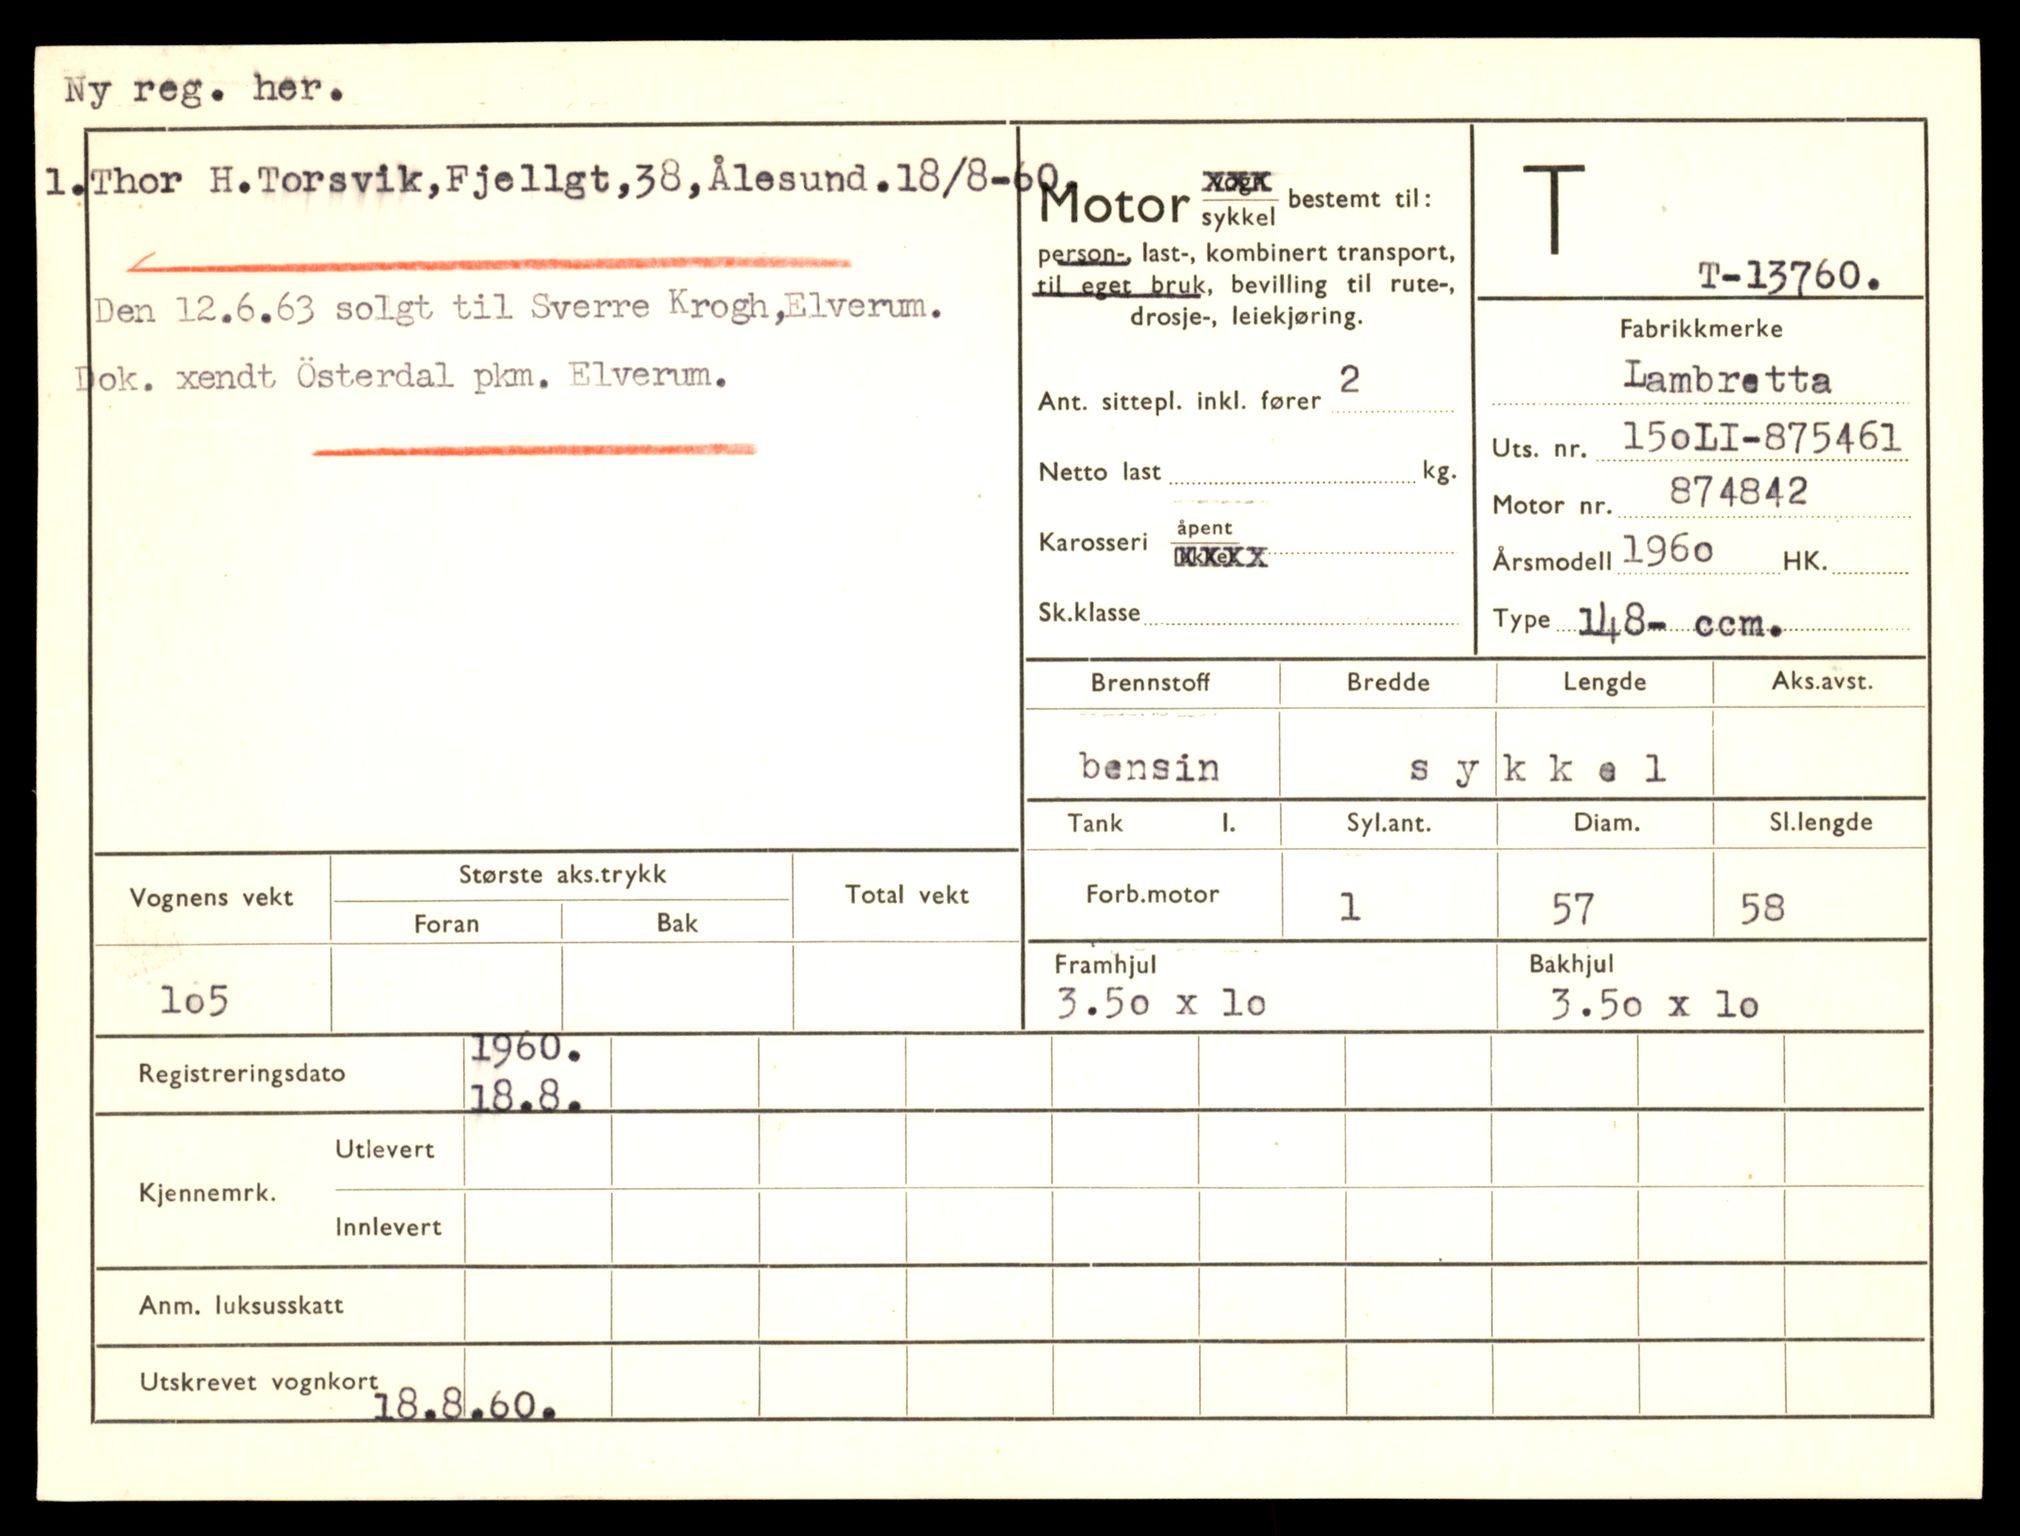 Ny reg. her.
1.Thor H.Torsvik,Fjellgt,38,Ålesund.18/8-60.
Den 12.6.63 solgt til Sverre Krogh,Elverum.
Dok. xendt Österdal pkm. Elverum.
Motor vogn sykkel bestemt til:
person-, last-, kombinert transport,
til eget bruk, bevilling til rute-,
drosje-, leiekjøring.
Ant. sittepl. inkl. fører 2
Netto last kg.
Karosseri åpent lukket
Sk.klasse
T
T-13760.
Fabrikkmerke
Lambretta
Uts. nr. 15oLI-875461
Motor nr. 874842
Årsmodell 196o HK.
Type 148- ccm.
Brennstoff Bredde Lengde Aks.avst.
bensin s y k k e l
Tank l. Syl.ant. Diam. Sl.lengde
Forb.motor 1 57 58
Framhjul Bakhjul
3.5o x lo 3.5o x lo
Vognens vekt Største aks.trykk Total vekt
Foran Bak
lo5
Registreringsdato 1960.
18.8.
Kjennemrk. Utlevert
Innlevert
Anm. luksusskatt
Utskrevet vognkort
18.8.60.